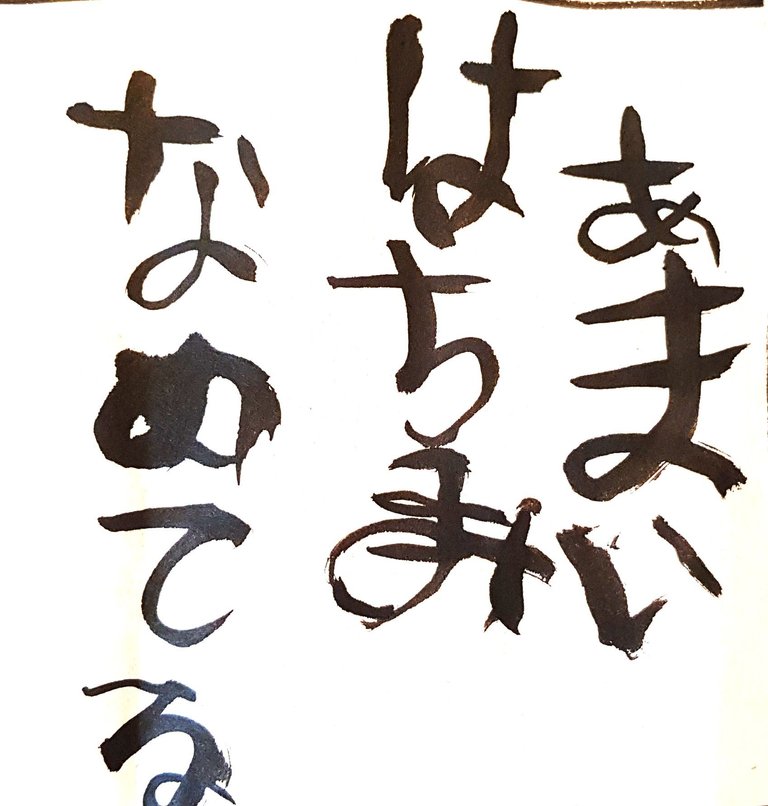 あまい
はちみ
なめてる